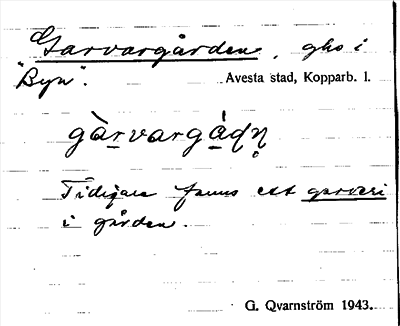 Garvargården, ghs i
"Byn". Avesta stad, Kopparb. l.
gàrvargá̱ɖṇ̥
Tidigare fanns ett garveri
i gården.
G. Qvarnström 1943.